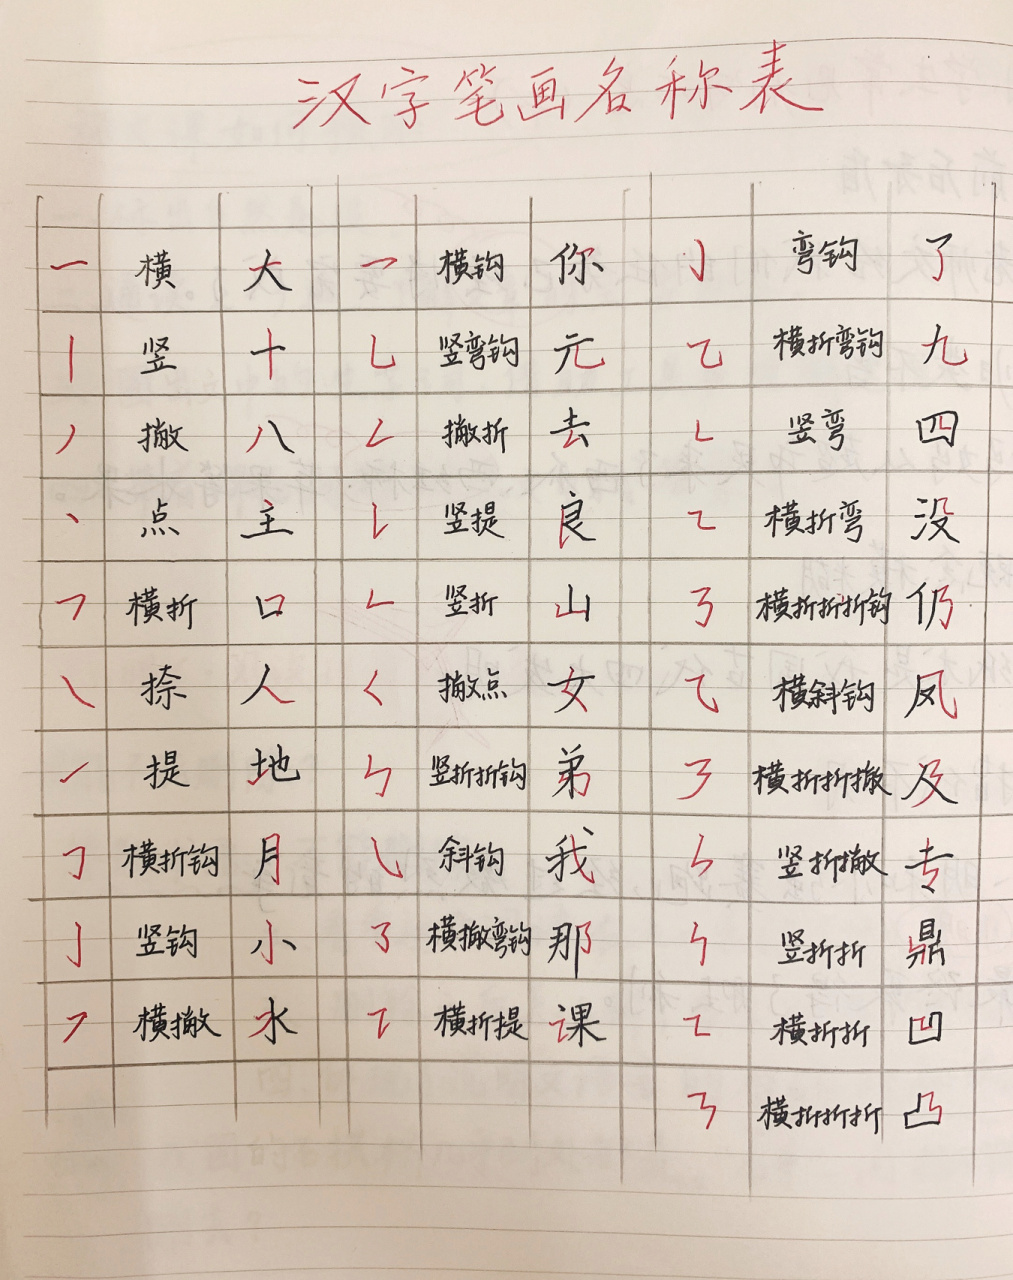 汉字笔画名称表
㇐ 横 大 ㇖ 横钩 你 ㇁ 弯钩 了
㇑ 竖 十 ㇟ 竖弯钩 元 ㇈ 横折弯钩 九
㇒ 撇 八 ㇜ 撇折 去 ㇄ 竖弯 四
㇔ 点 主 ㇙ 竖提 良 ㇍ 横折弯 没
㇕ 横折 口 ㇗ 竖折 山 ㇡ 横折折折钩 仍
㇏ 捺 人 ㇛ 撇点 女 ⺄ 横斜钩 风
㇀ 提 地 ㇉ 竖折折钩 弟 ㇋ 横折折撇 及
㇆ 横折钩 月 ㇂ 斜钩 我 ㇞ 竖折撇 专
㇚ 竖钩 小 ㇌ 横撇弯钩 那 ㇞ 竖折折 鼎
㇇ 横撇 水 ㇊ 横折提 课 ㇅ 横折折 凹
㇎ 横折折折 凸